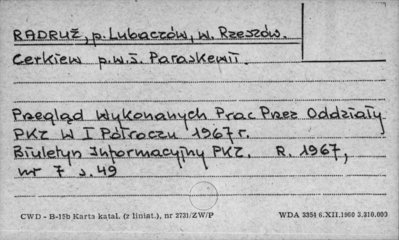 RADRUŻ, p. Lubaczów, w. Rzeszów.
Cerkiew p.w.ś. Paraskewii.
Pregląd Wykonanych Prac Przez Oddziały
PKZ W I Półroczu 1967 r.
Biuletyn Informacyjny PKZ. R. 1967,
nr 7 s. 49
CWD - B-15b Karta katal. (z liniat.), nr 2731/ZW/P WDA 3354 6.XII.1960 3.310.000